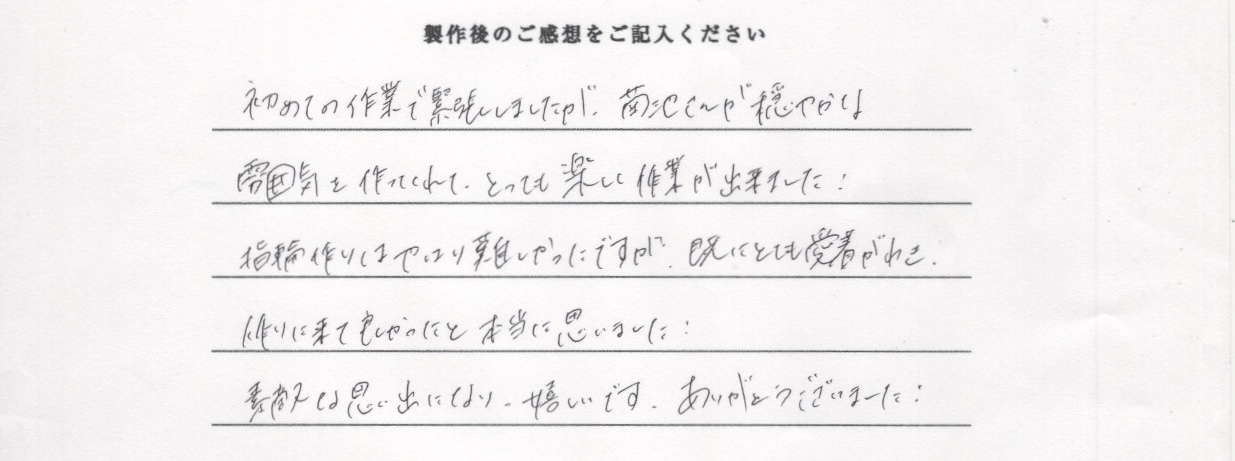 製作後のご感想をご記入ください
初めての作業で緊張しましたが、菊池さんが穏やかな
雰囲気を作ってくれて、とっても楽しい作業が出来ました！
指輪作りはやはり難しかったですが、既にとても愛着がわき、
作りに来て良かったと本当に思いました！
素敵な思い出になり、嬉しいです。ありがとうございました！